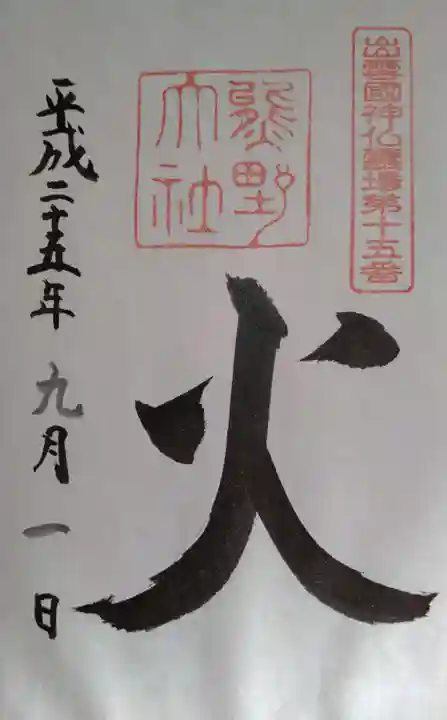 出雲國神仏霊場第十五番
熊野
大社
火
平成二十五年 九月 一 日